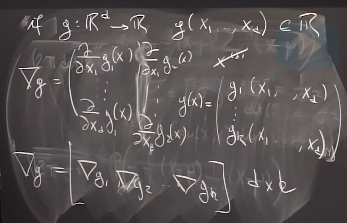 if g: ℝᵈ → ℝ g(x₁ ..., x_d) ∈ ℝ
∇g = ( ∂/∂x₁ g₁(x) ∂/∂x₁ g₂(x)
⋮ ⋮
∂/∂x_d g₁(x) ∂/∂x_d g₂(x)
g(x) = ( g₁(x₁, ..., x_d)
⋮
g_k(x₁ ..., x_d) )
∇g = [ ∇g₁ ∇g₂ ... ∇g_k ] d×k